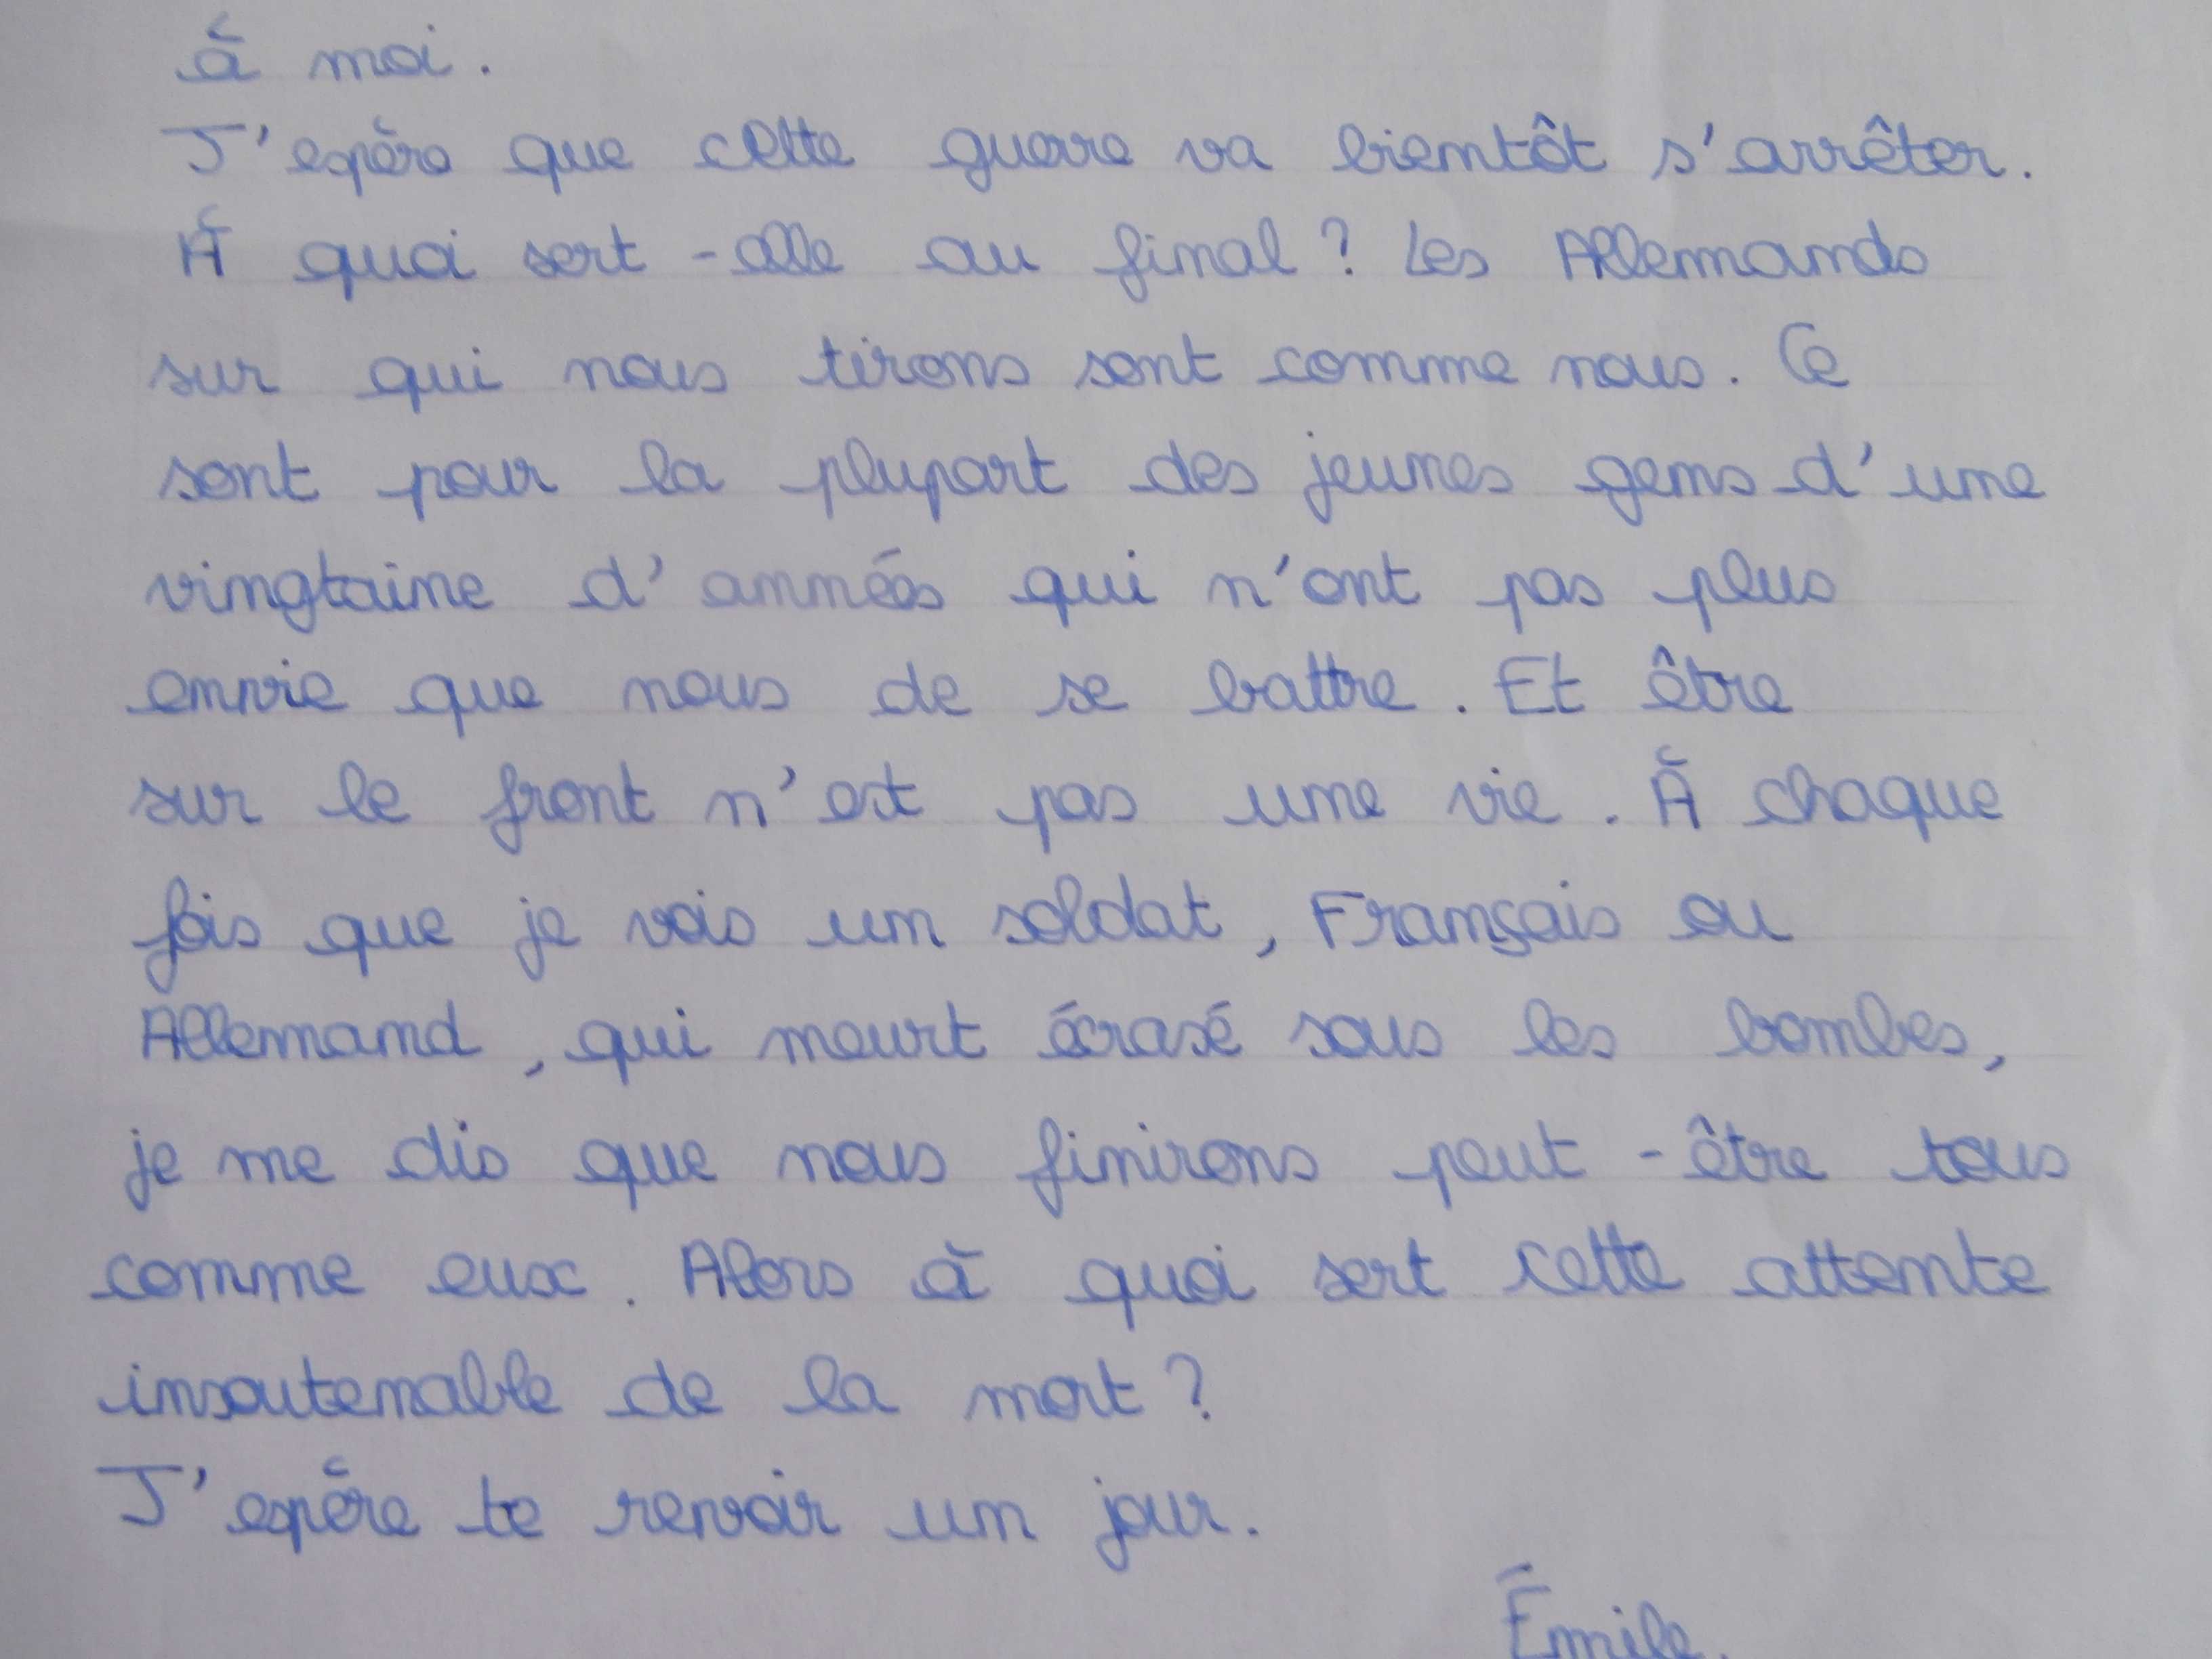 à moi.
J'espère que cette guerre va bientôt s'arrêter.
À quoi sert-elle au final ? Les Allemands
sur qui nous tirons sont comme nous. Ce
sont pour la plupart des jeunes gens d'une
vingtaine d'années qui n'ont pas plus
envie que nous de se battre. Et être
sur le front n'est pas une vie. À chaque
fois que je vois un soldat, Français ou
Allemand, qui meurt écrasé sous les bombes,
je me dis que nous finirons peut-être tous
comme eux. Alors à quoi sert cette attente
insoutenable de la mort ?
J'espère te revoir un jour.
Émile.